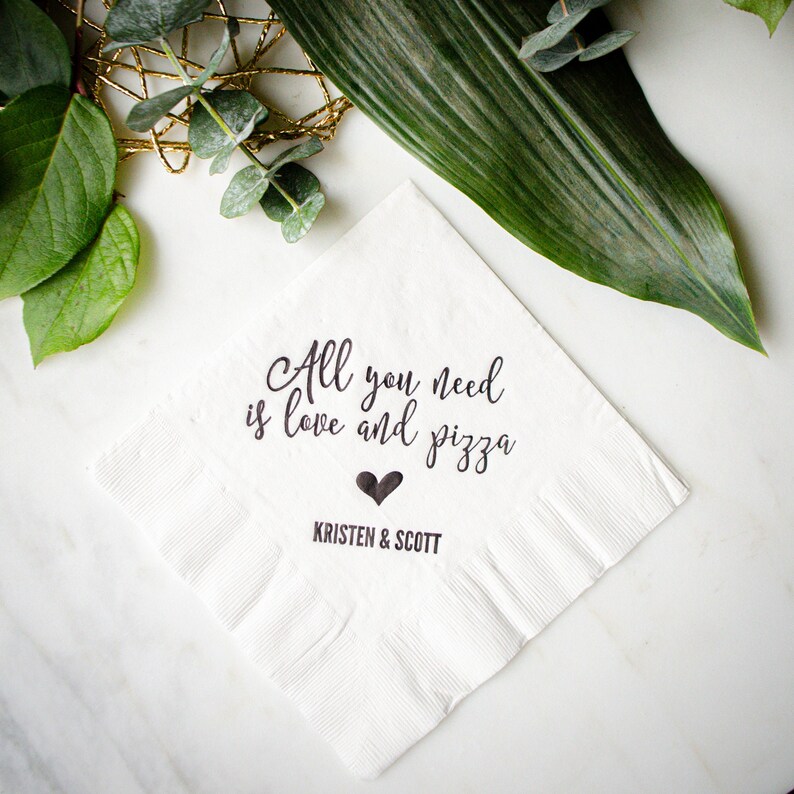 All you need
is love and pizza
KRISTEN & SCOTT